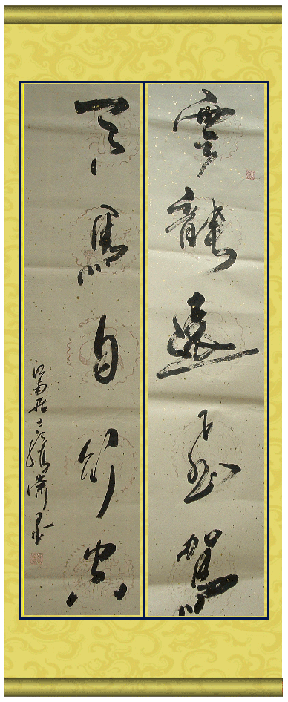 雲龍遠飛駕
天馬自行空